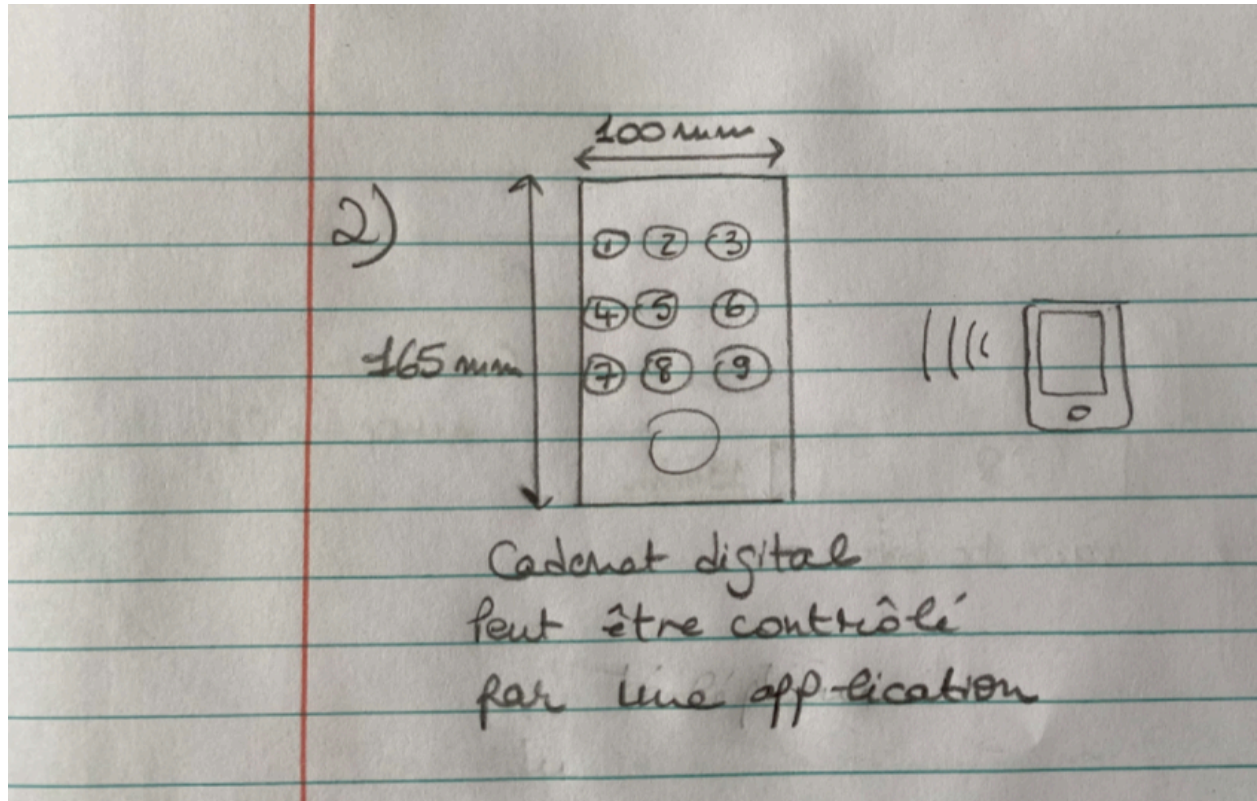 100 mm
2)
1 2 3
4 5 6
165 mm
7 8 9
Cadenat digital
Peut être contrôlé
par une app-lication